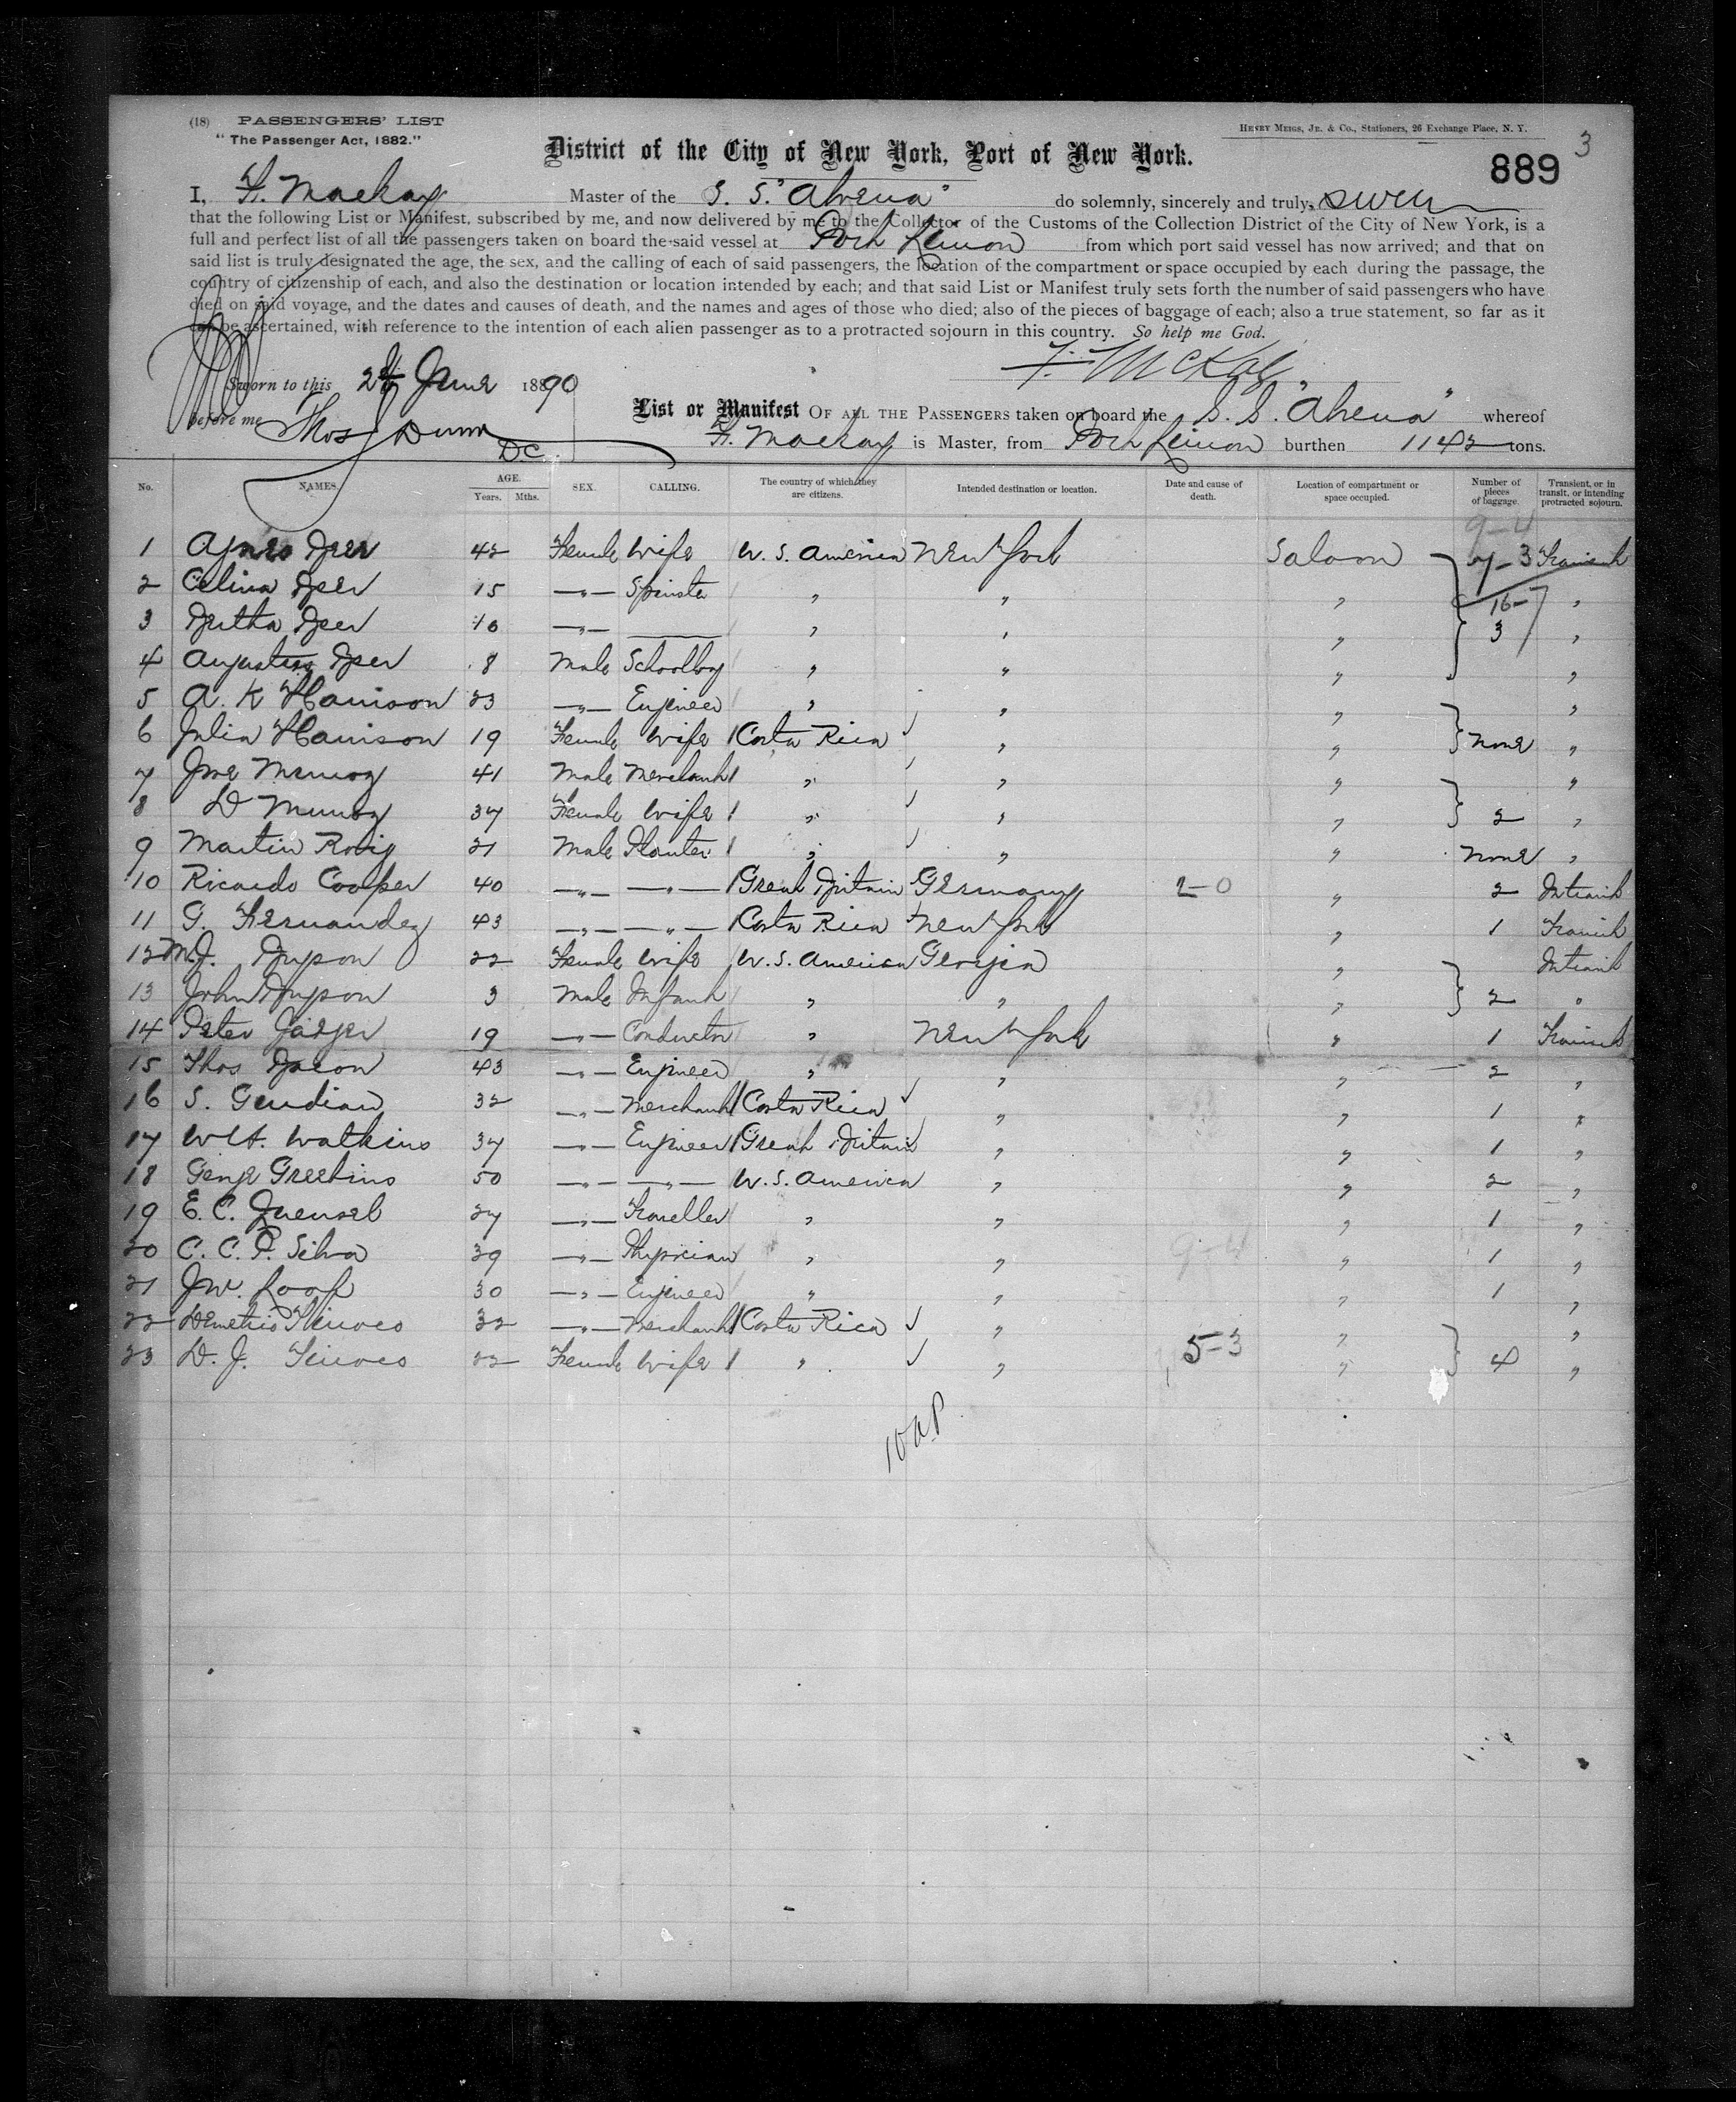 (18) PASSENGERS' LIST
"The Passenger Act, 1882."
HENRY MEIGS, JR. & CO., Stationers, 26 Exchange Place, N. Y.
3
District of the City of New York, Port of New York.
889
I, F. Mackay Master of the S. S. "Alvena" do solemnly, sincerely and truly swear
that the following List or Manifest, subscribed by me, and now delivered by me to the Collector of the Customs of the Collection District of the City of New York, is a
full and perfect list of all the passengers taken on board the said vessel at Port Limon from which port said vessel has now arrived; and that on
said list is truly designated the age, the sex, and the calling of each of said passengers, the location of the compartment or space occupied by each during the passage, the
country of citizenship of each, and also the destination or location intended by each; and that said List or Manifest truly sets forth the number of said passengers who have
died on said voyage, and the dates and causes of death, and the names and ages of those who died; also of the pieces of baggage of each; also a true statement, so far as it
can be ascertained, with reference to the intention of each alien passenger as to a protracted sojourn in this country. So help me God.
F. McKay
Sworn to this June 1890
before me Thos J Dunn
D.C.
List or Manifest OF ALL THE PASSENGERS taken on board the S. S. "Alvena" whereof
F. Mackay is Master, from Port Limon burthen 1142 tons.
No. NAMES. AGE. Years. Mths. SEX. CALLING. The country of which they are citizens. Intended destination or location. Date and cause of death. Location of compartment or space occupied. Number of pieces of baggage. Transient, or in transit, or intending protracted sojourn.
9-4
1 Agnes 42 Female Wife U. S. America New York Saloon 7-3 Transit
2 Celina 15 —"— Spinster " " " 16- "
3 10 —"— —— " " " 3 "
4 8 Male Schoolboy " " " "
5 A. K Harrison 23 —"— Engineer " " " "
6 Julia Harrison 19 Female Wife Costa Rica " " none "
7 Jose Munoz 41 Male Merchant " " " "
8 D Munoz 37 Female Wife " " " 2 "
9 Martin Roig 21 Male Planter " " " none "
10 Ricardo Cooper 40 —"— —"— Great Britain Germany 2-0 " 2 Intransit
11 G. Fernandez 43 —"— —"— Costa Rica New York " 1 Transit
12 M. J. 22 Female Wife U. S. America Georgia " Intransit
13 John 3 Male Infant " " " 2 "
14 Peter Jaeger 19 —"— Conductor " New York " 1 Transit
15 Thos 43 —"— Engineer " " " 2 "
16 S. 32 —"— Merchant Costa Rica " " 1 "
17 Watkins 37 —"— Engineer Great Britain " " 1 "
18 George 50 —"— —"— U. S. America " " 2 "
19 E. C. 27 —"— Traveller " " " 1 "
20 C. C. P. Silva 39 —"— Physician " " 9-4 " 1 "
21 J W. Loop 30 —"— Engineer " " " 1 "
22 Demetrio Tinoco 32 —"— Merchant Costa Rica " " "
23 D. J. Tinoco 22 Female Wife " " 5-3 " 4 "